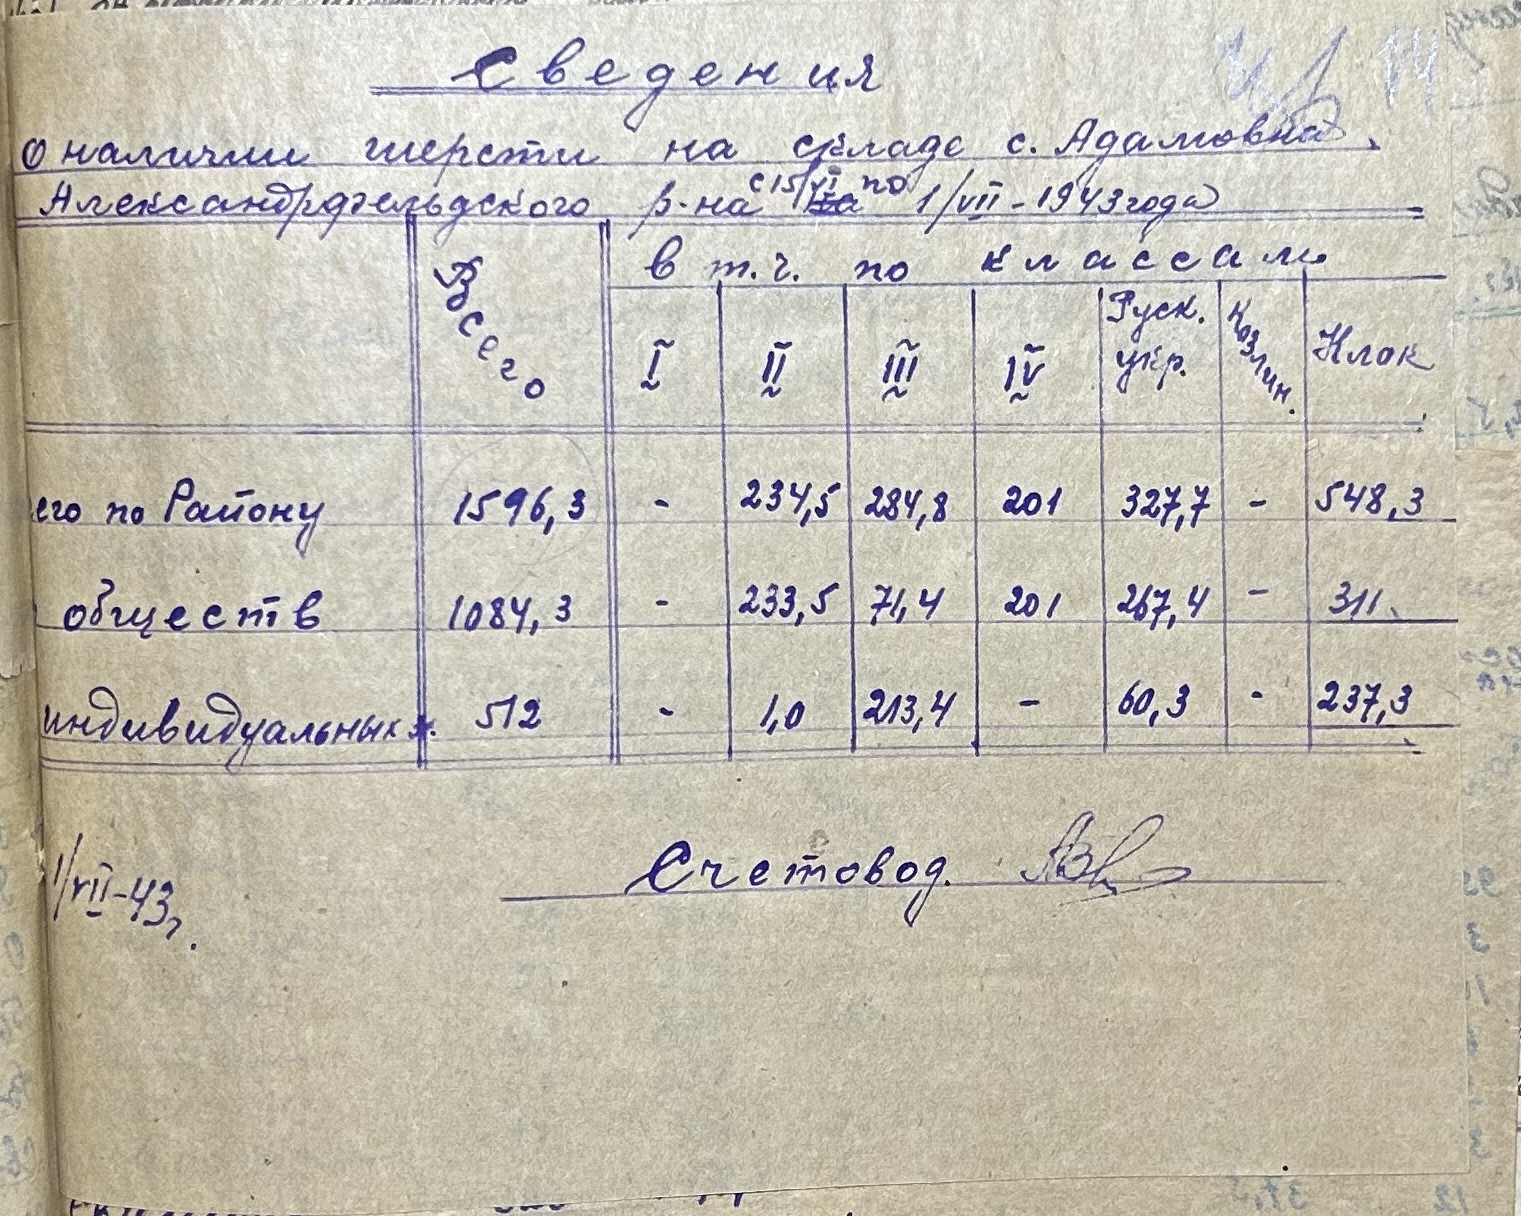 14
Сведения
о наличии шерсти на складе с. Адамовка.
Александрфельдского р-на с 15/VI по 1/VII-1943 года
Всего
в т.ч. по классам
I II III IV Руск. укр. Козлин. Клок
его по Району 1596,3 - 234,5 284,8 201 327,7 - 548,3
обществ 1084,3 - 233,5 71,4 201 267,4 - 311.
индивидуальных х. 512 - 1,0 213,4 - 60,3 - 237,3
1/VII-43г.
Счетовод.